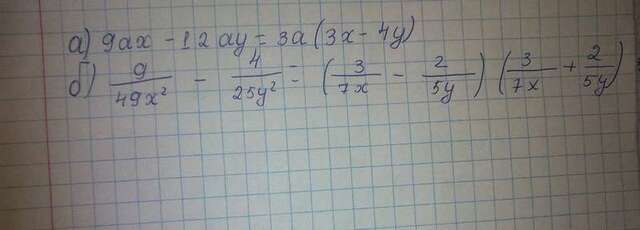 а) 9ax - 12ay = 3a(3x - 4y)
б) 9/49x² - 4/25y² = (3/7x - 2/5y)(3/7x + 2/5y)